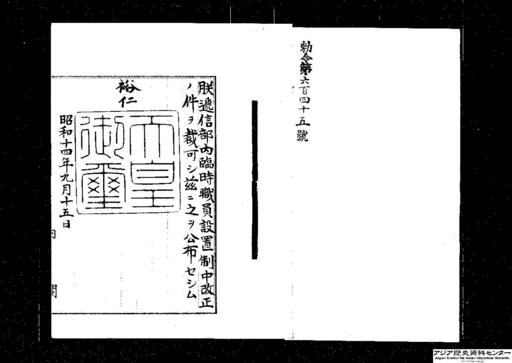 勅令第六百四十五號
朕遞信部內臨時職員設置制中改正
ノ件ヲ裁可シ茲ニ之ヲ公布セシム
裕仁
天皇
御璽
昭和十四年九月十五日
內閣
アジア歴史資料センター
Japan Center for Asian Historical Records